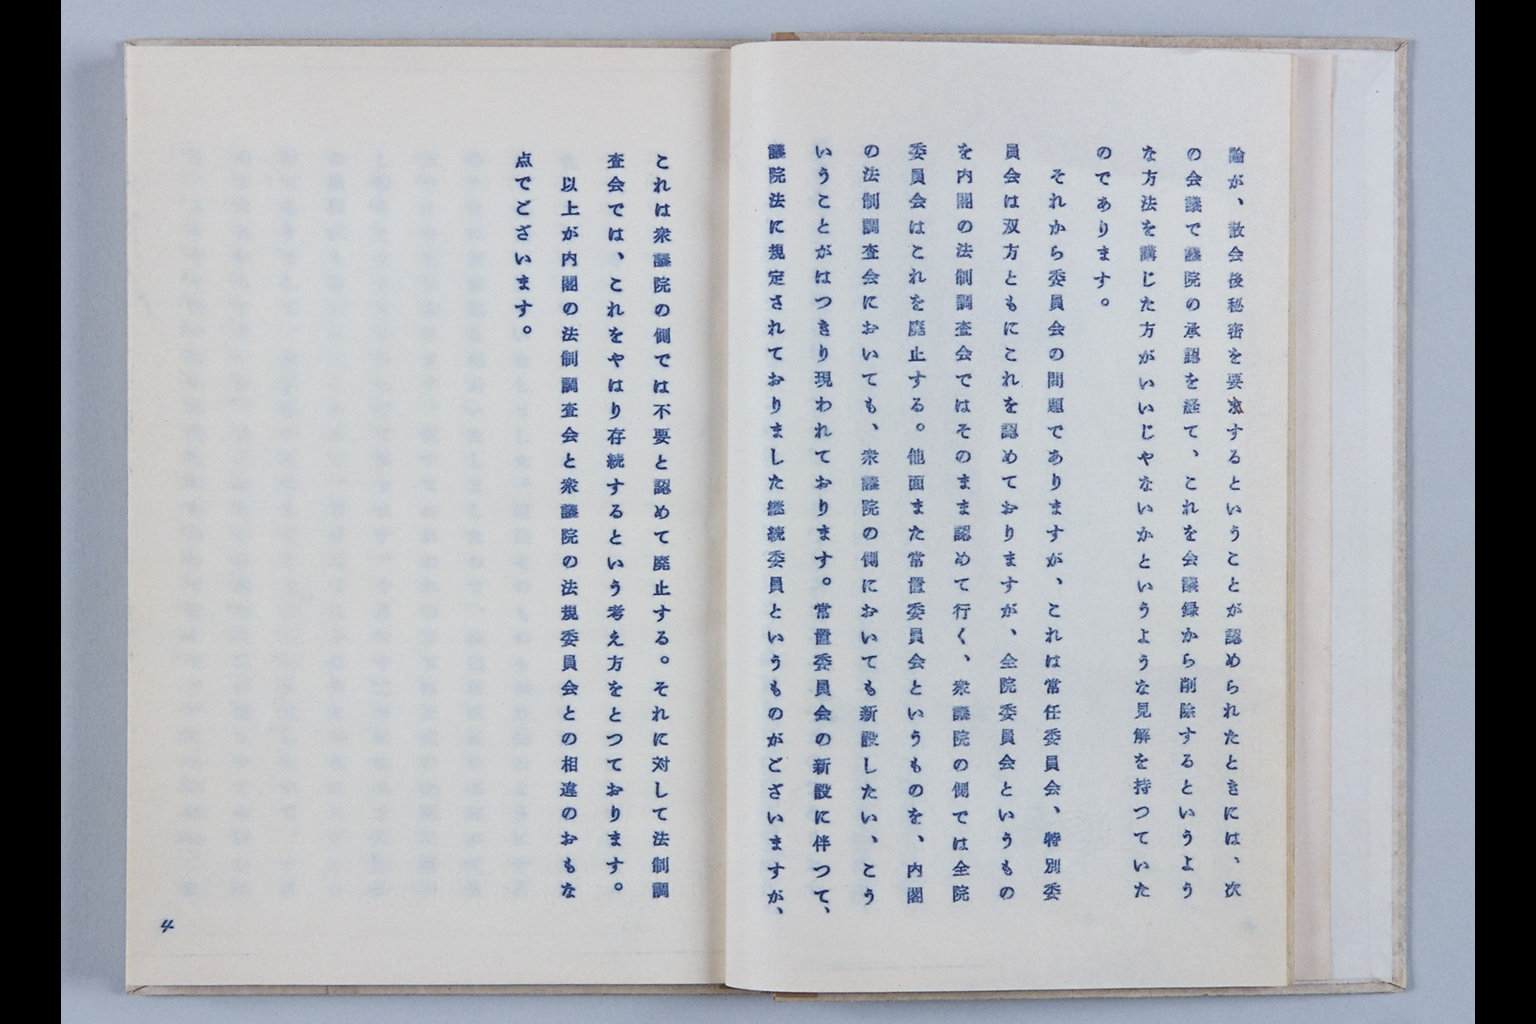 論が、散会後秘密を要求するということが認められたときには、次
の会議で議院の承認を経て、これを会議録から削除するというよう
な方法を講じた方がいいじやないかというような見解を持つていた
のであります。
それから委員会の問題でありますが、これは常任委員会、特別委
員会は双方ともにこれを認めておりますが、全院委員会というもの
を内閣の法制調査会ではそのまま認めて行く、衆議院の側では全院
委員会はこれを廃止する。他面また常置委員会というものを、内閣
の法制調査会においても、衆議院の側においても新設したい、こう
いうことがはつきり現われております。常置委員会の新設に伴つて、
議院法に規定されておりました継続委員というものがございますが、
これは衆議院の側では不要と認めて廃止する。それに対して法制調
査会では、これをやはり存続するという考え方をとつております。
以上が内閣の法制調査会と衆議院の法規委員会との相違のおもな
点でございます。
4